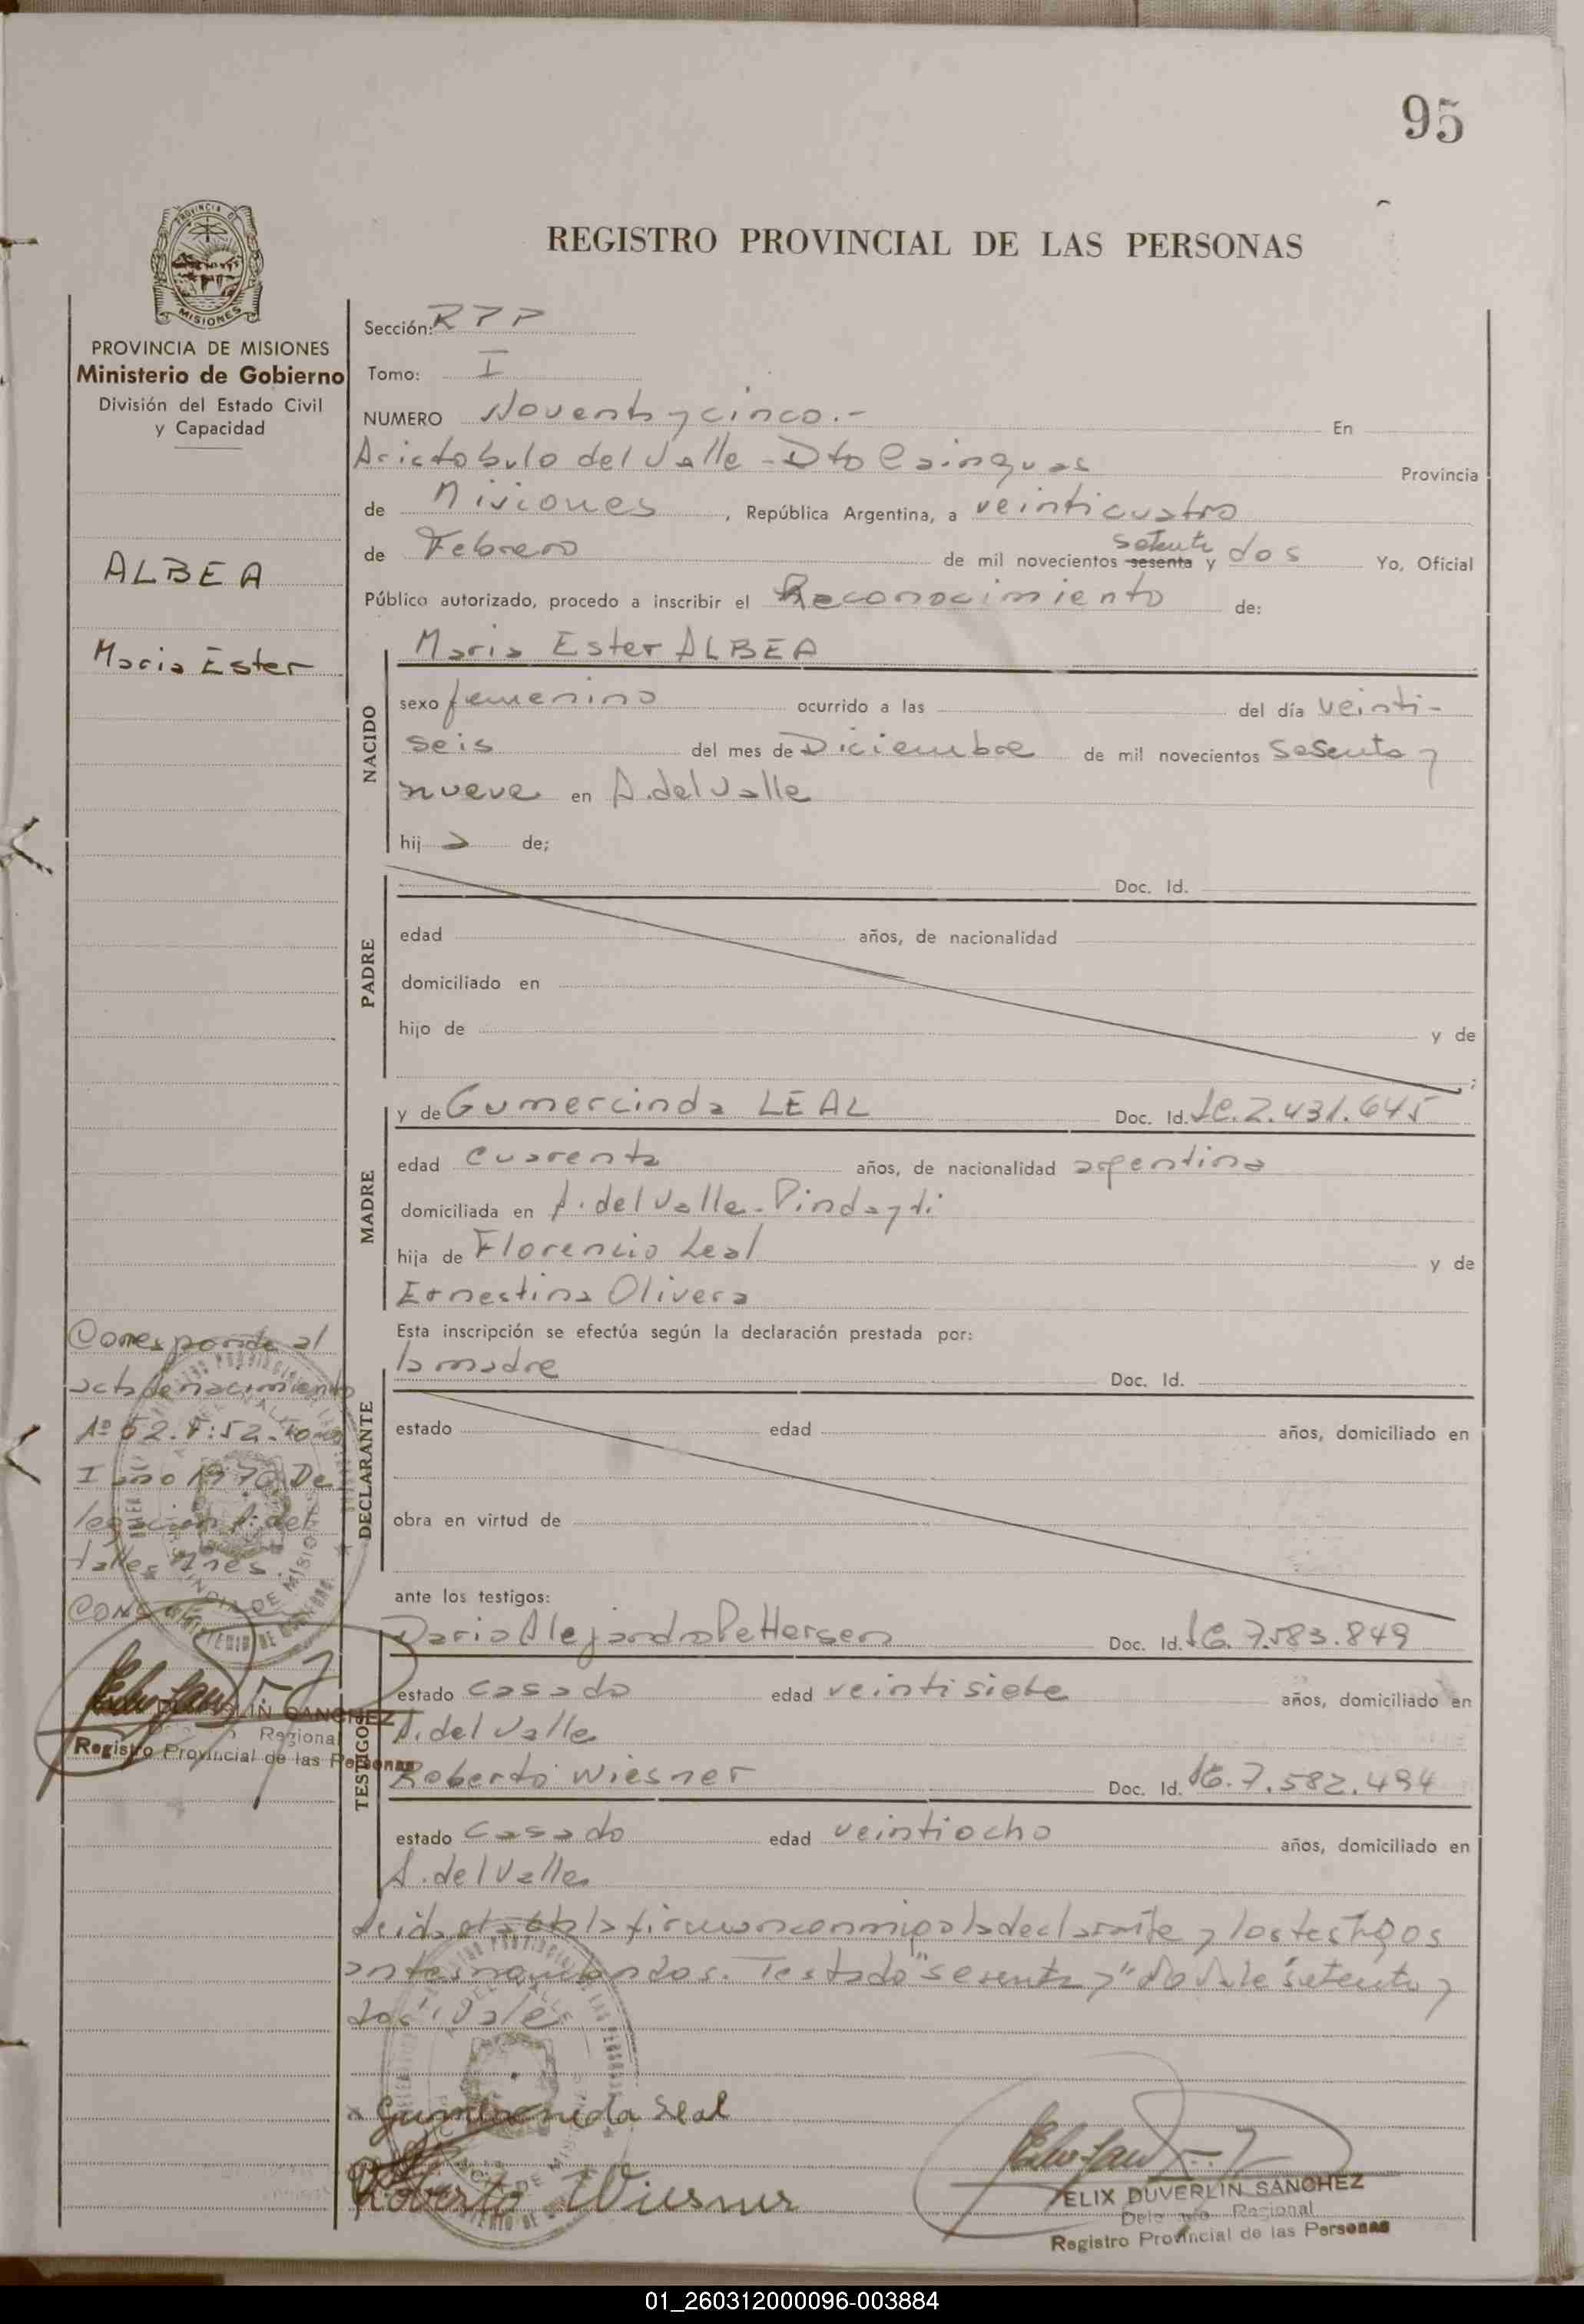 95
REGISTRO PROVINCIAL DE LAS PERSONAS
PROVINCIA DE MISIONES
Ministerio de Gobierno
División del Estado Civil
y Capacidad
ALBEA
Maria Ester
Sección: RPP
Tomo: I
NUMERO Noventa y cinco.- En
Aristobulo del Valle - Dto Cainguas Provincia
de Misiones, República Argentina, a veinticuatro
de Febrero de mil novecientos sesenta setenta y dos Yo, Oficial
Público autorizado, procedo a inscribir el Reconocimiento de:
NACIDO
Maria Ester ALBEA
sexo femenino ocurrido a las del día veinti-
seis del mes de Diciembre de mil novecientos sesenta y
nueve en A. del Valle
hija de;
PADRE
Doc. Id.
edad años, de nacionalidad
domiciliado en
hijo de y de
;
MADRE
y de Gumercinda LEAL Doc. Id. LC. 2.431.645
edad cuarenta años, de nacionalidad argentina
domiciliada en A. del Valle - Pindayti
hija de Florencio Leal y de
Ernestina Olivera
Esta inscripción se efectúa según la declaración prestada por:
DECLARANTE
la madre Doc. Id.
estado edad años, domiciliado en
obra en virtud de
ante los testigos:
TESTIGOS
Dario Alejandro Pettersen Doc. Id. 7.583.849
estado casado edad veintisiete años, domiciliado en
A. del Valle
Roberto Wiesner Doc. Id. 7.582.494
estado casado edad veintiocho años, domiciliado en
A. del Valle
Leida el acta la firman conmigo la declarante y los testigos
antes nombrados. Testado "sesenta y" do Vale "setenta y
dos" Vale
Corresponde al
acta de nacimiento
Nº 52. F: 52. Tomo
I año 1970 De
legación A. del
Valle Mnes.
CONS
SANCHEZ
Regional
Registro Provincial de las Personas
x Gumercinda Leal
Roberto Wiesner
FELIX DUVERLIN SANCHEZ
Delegado Regional
Registro Provincial de las Personas
01_260312000096-003884